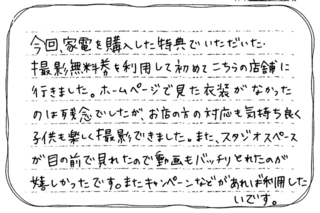 今回家電を購入した特典でいただいた
撮影無料券を利用して初めてこちらの店舗に
行きました。ホームページで見た衣装がなかった
のは残念でしたが、お店の方の対応も気持ち良く
子供も楽しく撮影できました。また、スタジオスペース
が目の前で見れたので動画もバッチリとれたのが
嬉しかったです。またキャンペーンなどがあれば利用した
いです。